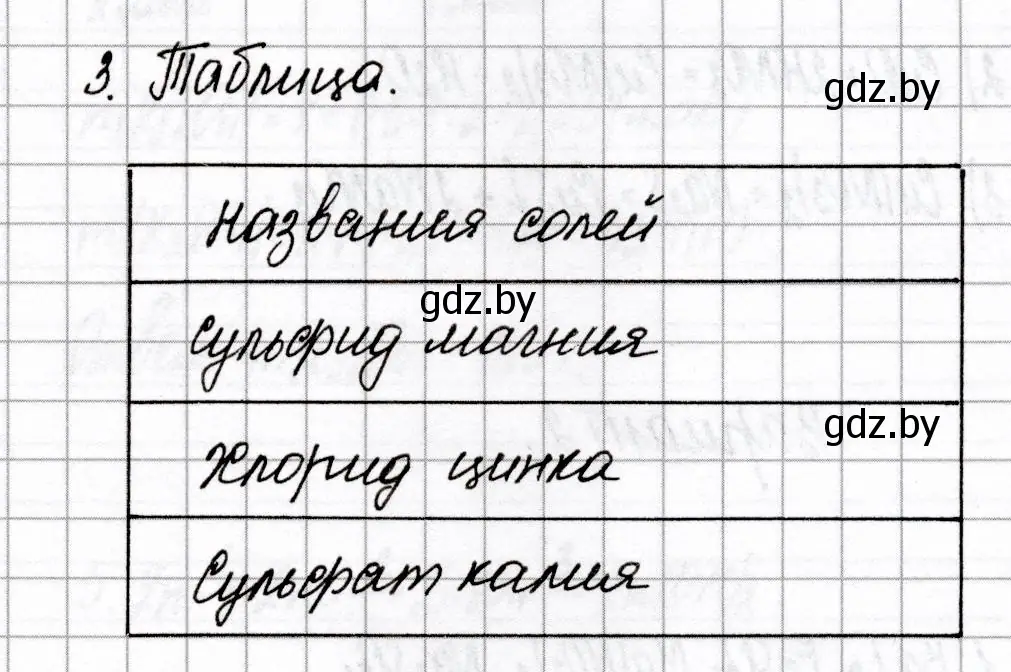 3. Таблица.
gdz.by
Названия солей
gdz.by
Сульфид магния
gdz.by
Хлорид цинка
Сульфат калия